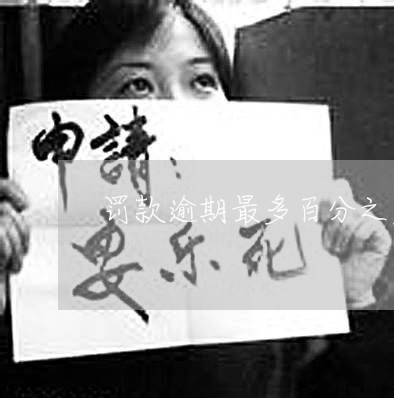 申請：
罚款逾期最多百分之
安乐死